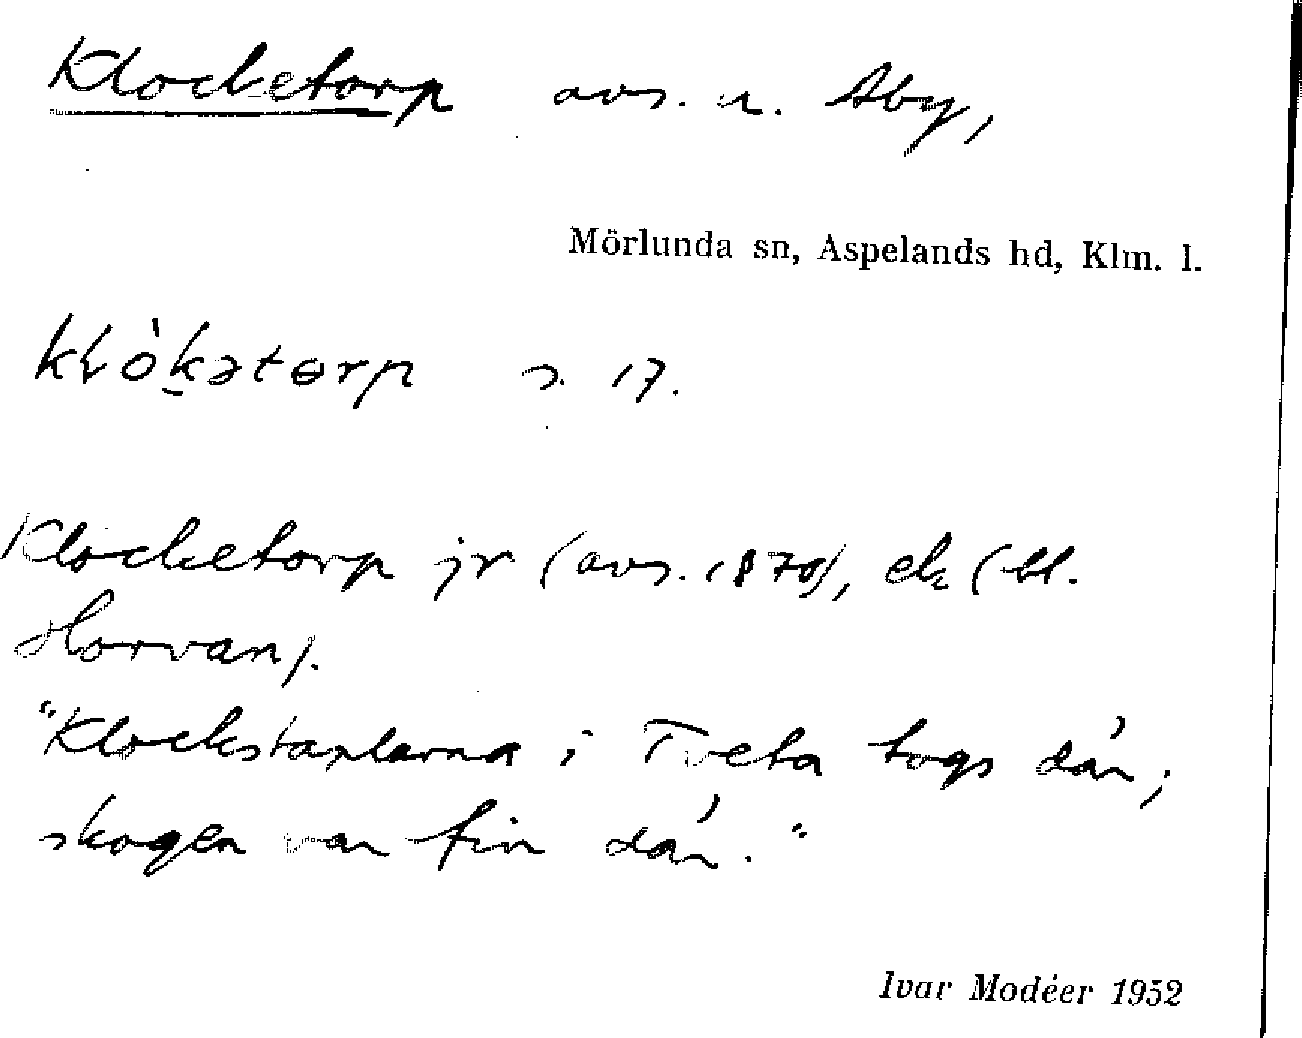 Klocketorp avs. u. Åby,
Mörlunda sn, Aspelands hd, Klm. l.
s. 17.
Klocketorp jr (avs. 1870), ek (bl.
Horvan).
"Klockstaplarna i Tveta togs dár;
skogen var fin dár."
Ivar Modéer 1952